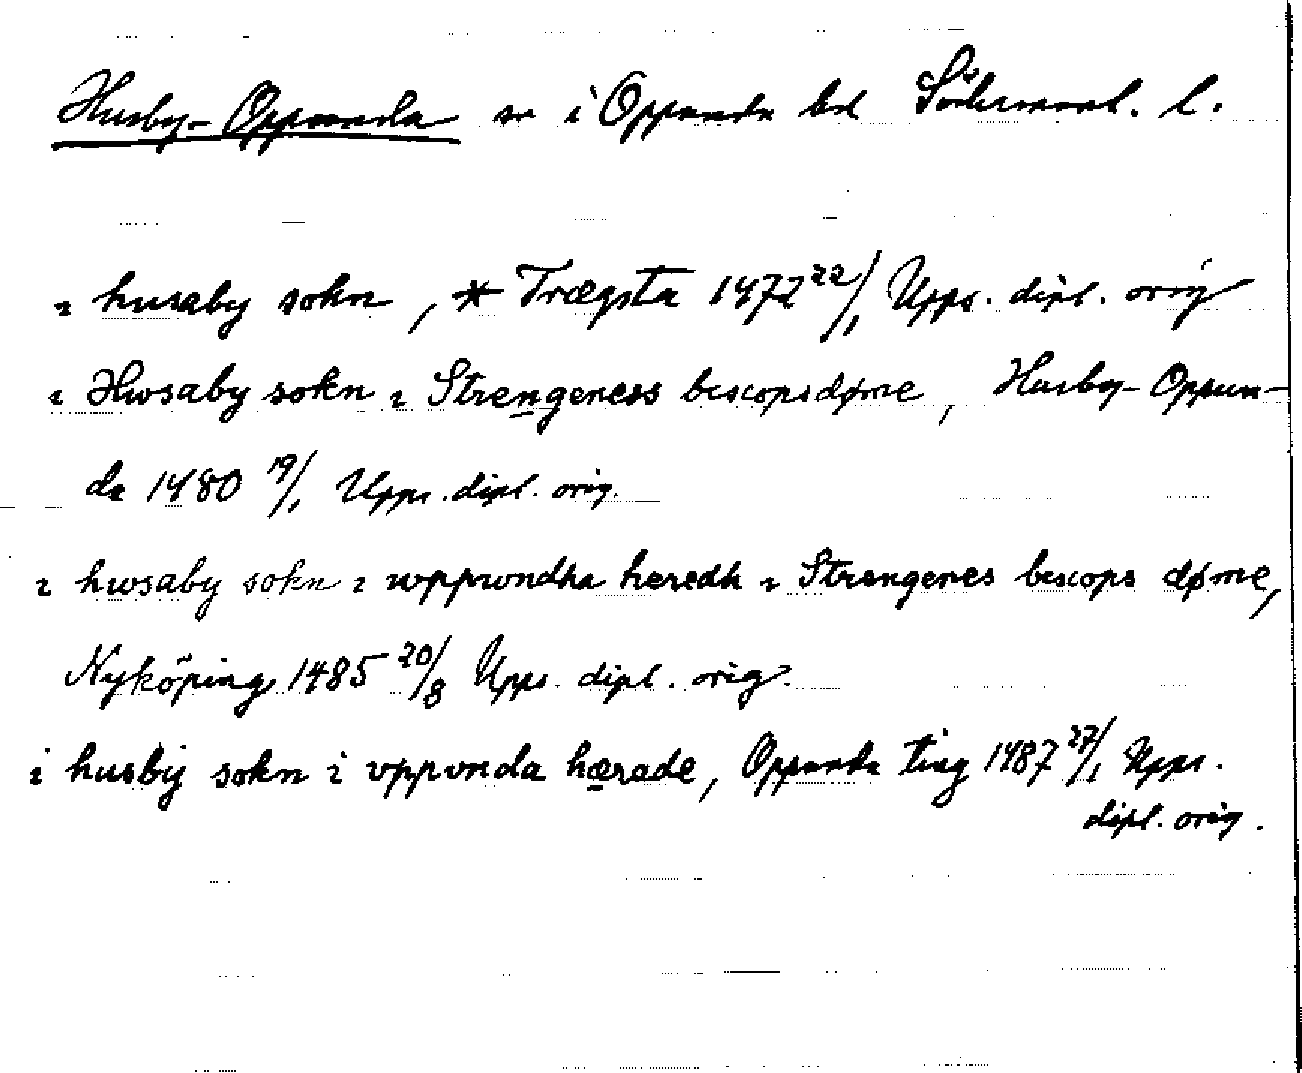 Husby-Oppunda sn i Oppunda hd Södermanl. l.
i husaby sokn, * Trægsta 1472 22/1 Upps. dipl. orig
i Hwsaby sokn i Strengeness bescopsdøme, Husby-Oppun-
da 1480 19/1 Upps. dipl. orig.
i hwsaby sokn i wppwndha heredh i Strengenes bescops døme,
Nyköping 1485 20/8 Upps. dipl. orig.
i husbij sokn i vppvnda hærade, Oppunda ting 1487 27/1 Upps.
dipl. orig.